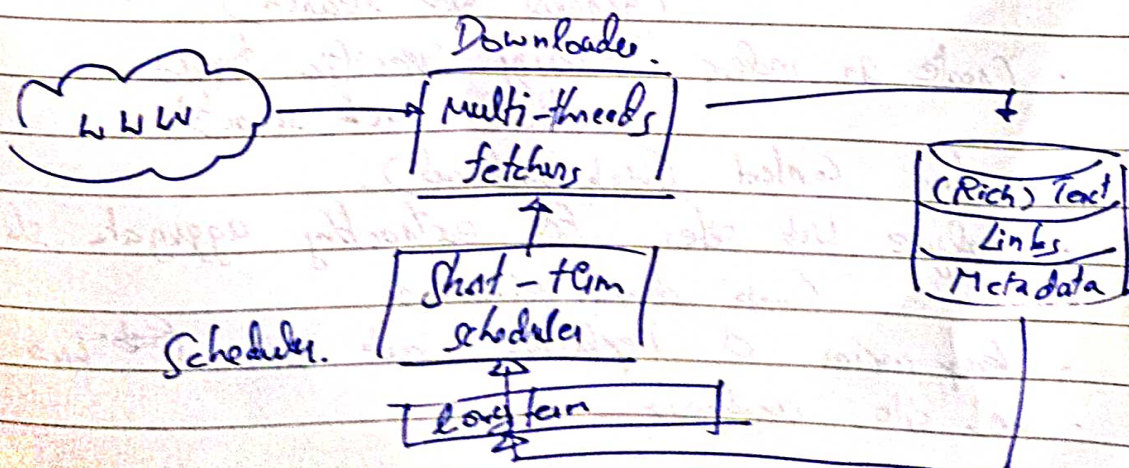 Downloader.
WWW
Multi-threads
fetchers
(Rich) Text
Links
Metadata
Short-term
scheduler
Scheduler.
long term